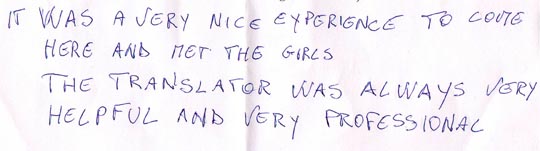 IT WAS A VERY NICE EXPERIENCE TO COME
HERE AND MET THE GIRLS
THE TRANSLATOR WAS ALWAYS VERY
HELPFUL AND VERY PROFESSIONAL